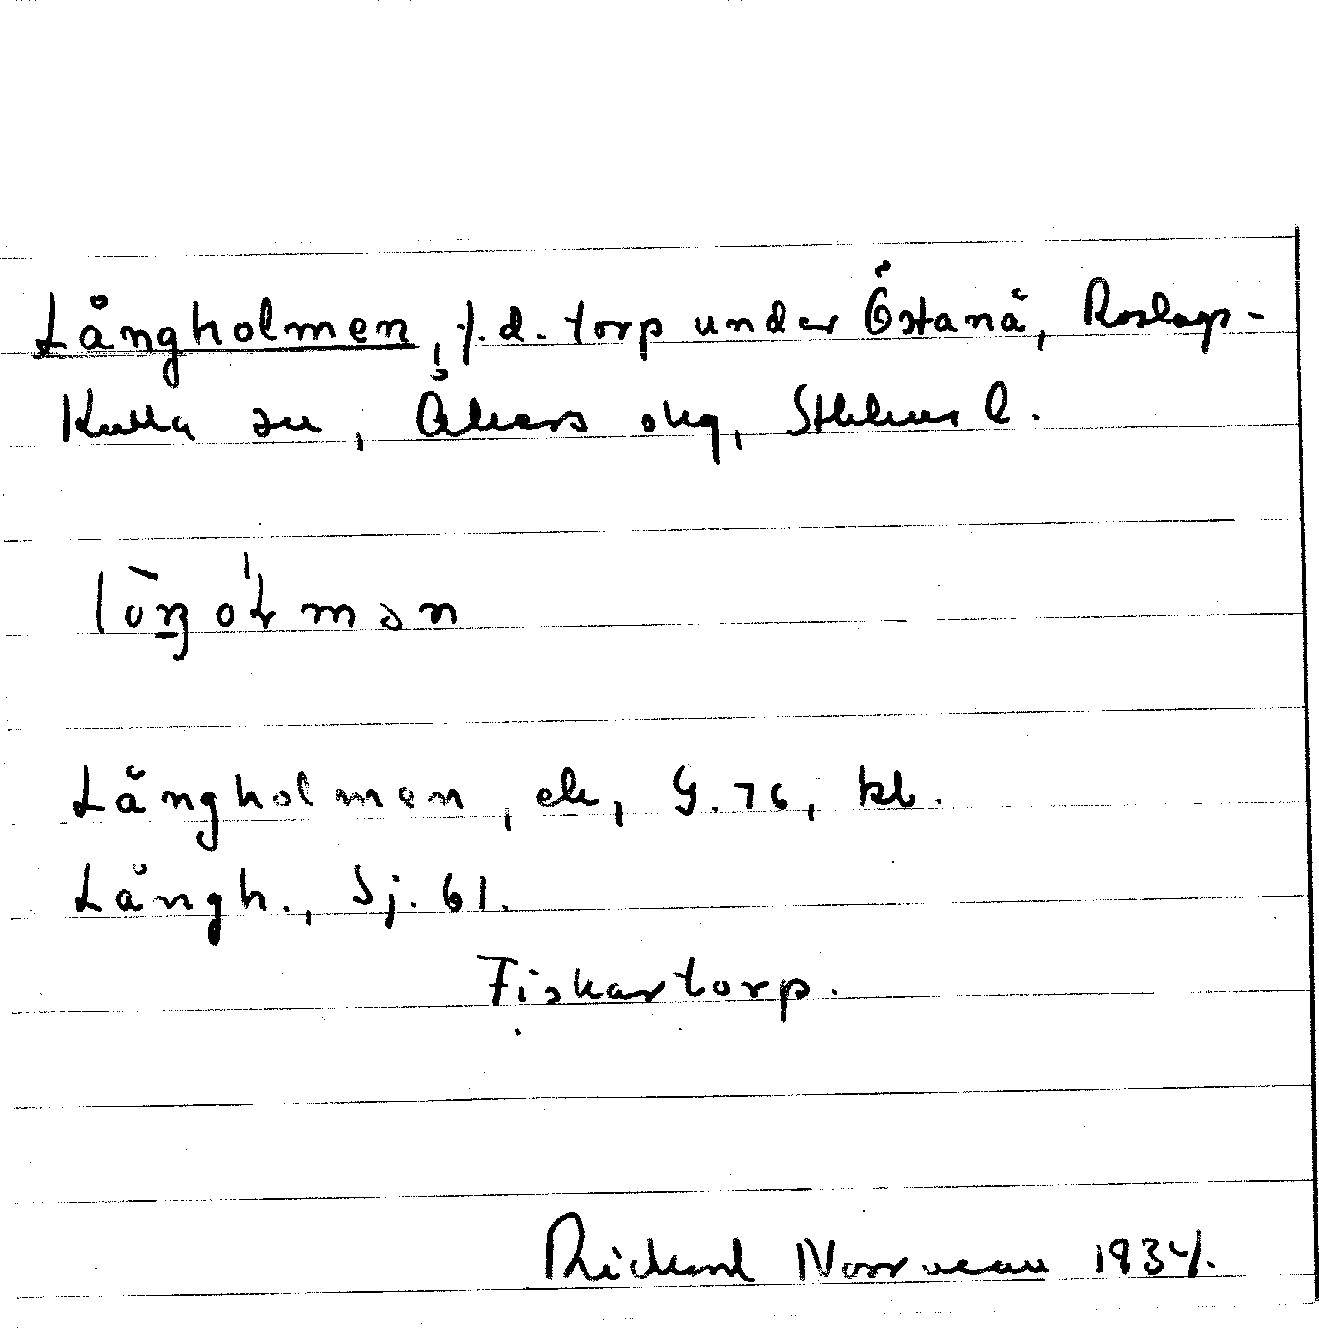 Långholmen, f.d. torp under Östanå, Roslags-
Kulla sn, Åkers skg, Sthlms l.
Långholmen, ek, G. 76, kb.
Långh., Sj. 61.
Fiskartorp.
Rickard Norrveau 1934.